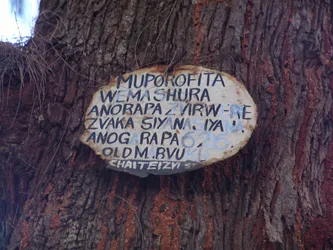 MUPOROFITA
WEMASHURA
ANORAPA ZVIRW-RE
ZVAKA SIYANA SIYA
ANOGRAPA
OLD M.RVU